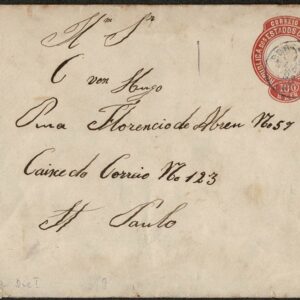 Illmo Sr
C von Hugo
Rua Florencio de Abreu No 57
Caixa do Correio No 123
St Paulo
CORREIO
REPUBLICA DOS ESTADOS
100